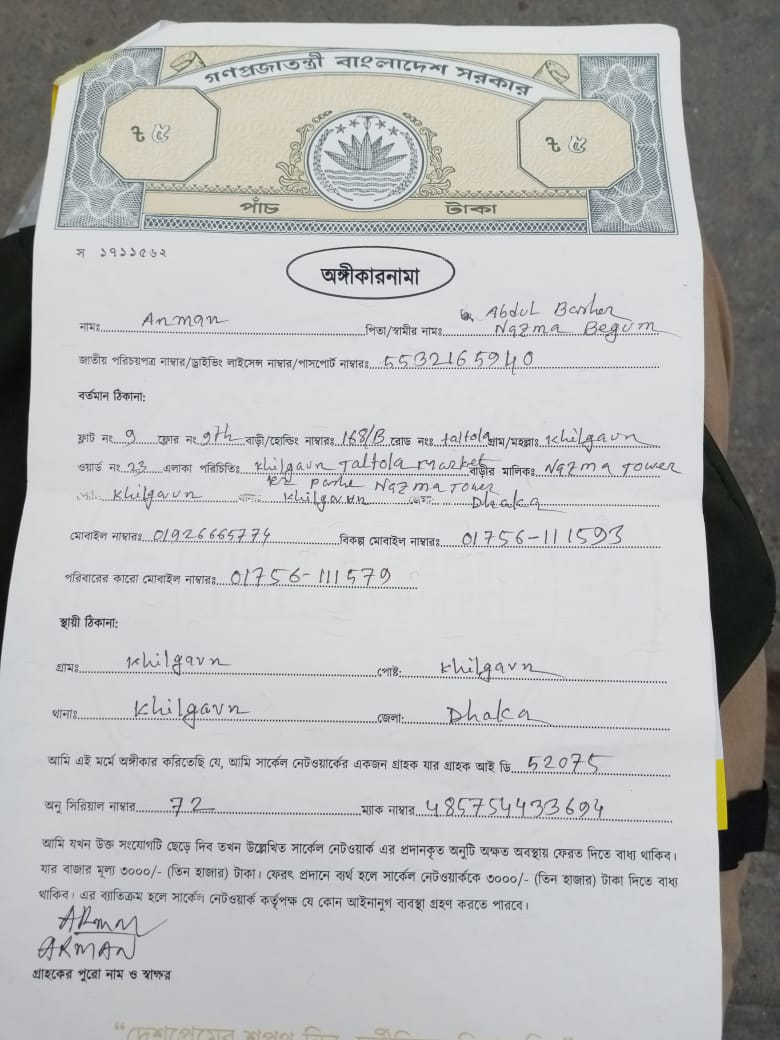 গণপ্রজাতন্ত্রী বাংলাদেশ সরকার
৳ ৫ ৳ ৫
পাঁচ টাকা
স ১৭১১৫৬২
অঙ্গীকারনামা
Abdul Basher
নামঃ Anman পিতা/স্বামীর নামঃ Nazma Begum
জাতীয় পরিচয়পত্র নাম্বার/ড্রাইভিং লাইসেন্স নাম্বার/পাসপোর্ট নাম্বারঃ 5532165940
বর্তমান ঠিকানা:
ফ্লাট নং 9 ফ্লোর নং 9th বাড়ী/হোল্ডিং নাম্বারঃ 168/B রোড নংঃ taltola গ্রাম/মহল্লাঃ Khilgaun
ওয়ার্ড নং 23 এলাকা পরিচিতিঃ Khilgaun Taltola market বাড়ীর মালিকঃ Nazma Tower
er pashe Nazma Tower
Khilgaun থানাঃ Khilgaun Dhaka
মোবাইল নাম্বারঃ 01926665774 বিকল্প মোবাইল নাম্বারঃ 01756-111593
পরিবারের কারো মোবাইল নাম্বারঃ 01756-111579
স্থায়ী ঠিকানা:
গ্রামঃ Khilgaun পোষ্ট: Khilgaun
থানাঃ Khilgaun জেলা: Dhaka
আমি এই মর্মে অঙ্গীকার করিতেছি যে, আমি সার্কেল নেটওয়ার্কের একজন গ্রাহক যার গ্রাহক আই ডি 52075
অনু সিরিয়াল নাম্বার 72 ম্যাক নাম্বার 485754433694
আমি যখন উক্ত সংযোগটি ছেড়ে দিব তখন উল্লেখিত সার্কেল নেটওয়ার্ক এর প্রদানকৃত অনুটি অক্ষত অবস্থায় ফেরত দিতে বাধ্য থাকিব।
যার বাজার মূল্য ৩০০০/- (তিন হাজার) টাকা। ফেরৎ প্রদানে ব্যর্থ হলে সার্কেল নেটওয়ার্ককে ৩০০০/- (তিন হাজার) টাকা দিতে বাধ্য
থাকিব। এর ব্যতিক্রম হলে সার্কেল নেটওয়ার্ক কর্তৃপক্ষ যে কোন আইনানুগ ব্যবস্থা গ্রহণ করতে পারবে।
ARMAN
ARMAN
গ্রাহকের পুরো নাম ও স্বাক্ষর